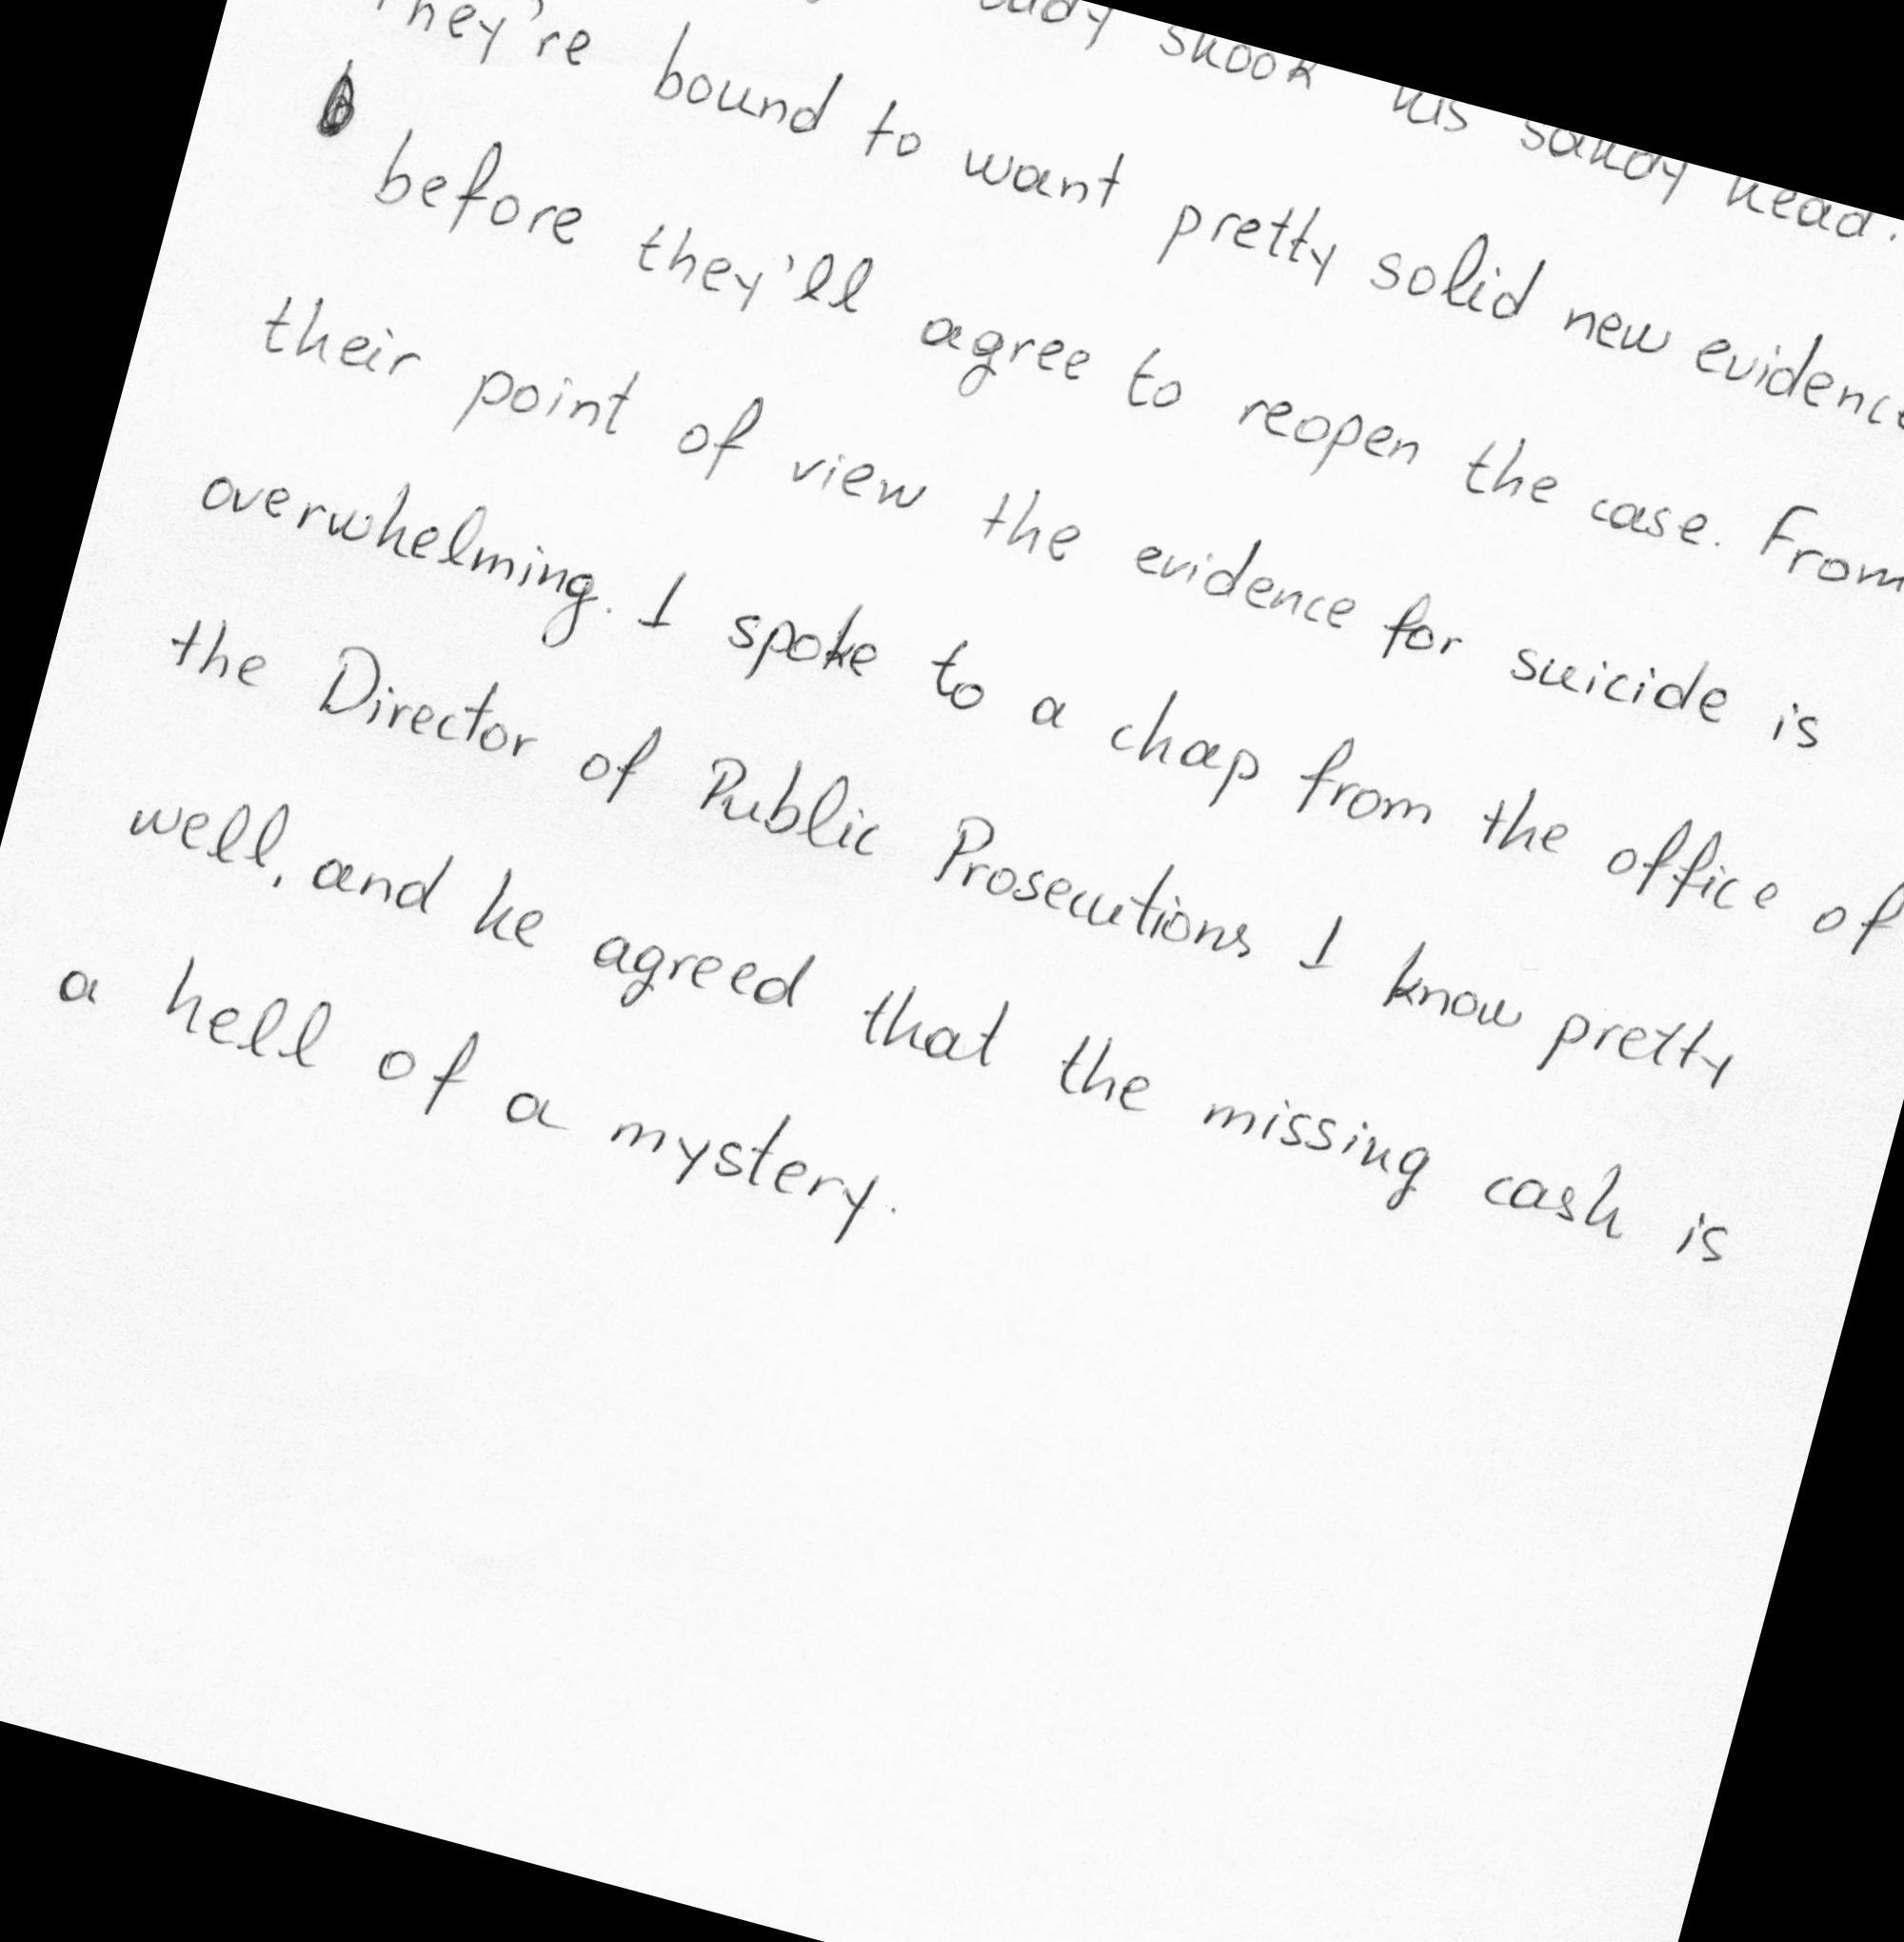 shook his sandy head.
They're bound to want pretty solid new evidence
before they'll agree to reopen the case. From
their point of view the evidence for suicide is
overwhelming. I spoke to a chap from the office of
the Director of Public Prosecutions I know pretty
well, and he agreed that the missing cash is
a hell of a mystery.